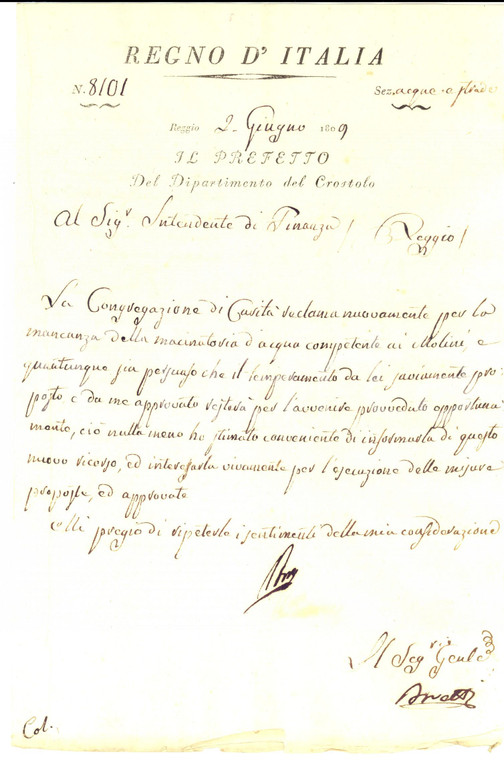 REGNO D' ITALIA
N. 8101
Sez. acque e strade
Reggio 2 Giugno 1809
IL PREFETTO
Del Dipartimento del Crostolo
Al Sigr. Intendente di Finanza /
Reggio /
La Congregazione di Carità reclama nuovamente per la
mancanza della macinatoria d'acqua competente ai Molini, e
quantunque sia persuaso che il temperamento da lei saviamente pro
posto e da me approvato resterà per l'avvenire provveduto opportuna
mente, ciò nulla meno ho stimato conveniente di informarla di questo
nuovo ricorso, ed interessarla vivamente per l'esecuzione delle misure
proposte, ed approvate
Mi pregio di ripeterle i sentimenti della mia considerazione
Il Segrio Genle
Col.